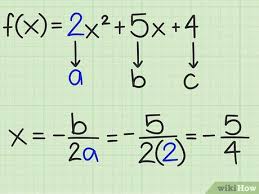 f(x) = 2x² + 5x + 4
a b c
x = -b/2a = -5/2(2) = -5/4
wikiHow